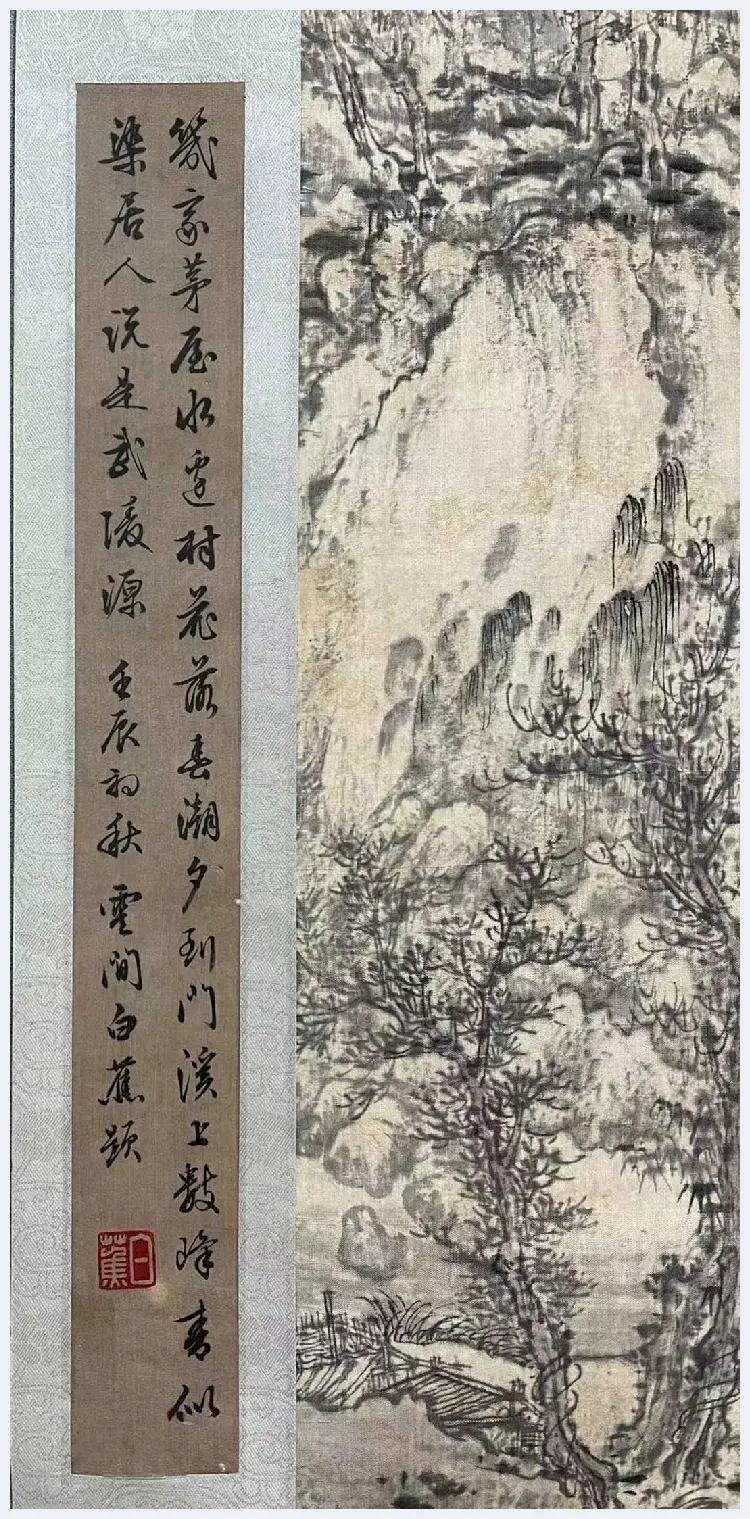 幾家茅屋水邊村花落春潮夕到門溪上數峰青似
染居人說是武陵源 壬辰初秋雲間白蕉題
白蕉